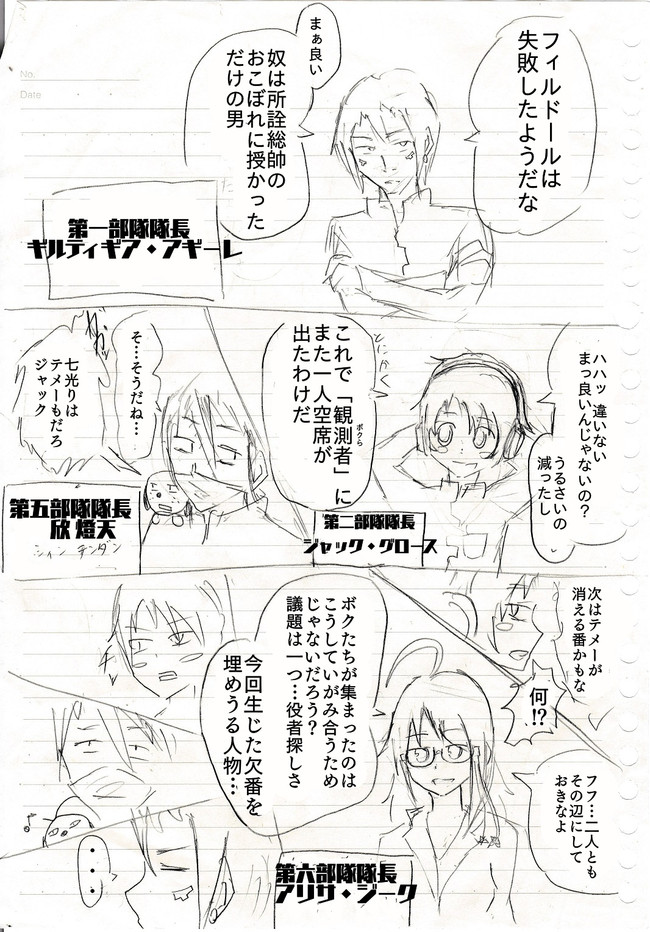 No.
Date
フィルドールは
失敗したようだな
まぁ良い
奴は所詮総帥の
おこぼれに授かった
だけの男
第一部隊隊長
ギルティギア・アギーレ
ハハッ 違いない
まっ良いんじゃないの?
うるさいの
減ったし
とにかく
これで「観測者」に
ボクら
また一人空席が
出たわけだ
そ…そうだね…
七光りは
テメーもだろ
ジャック
第二部隊隊長
ジャック・グロース
第五部隊隊長
欣 燈天
次はテメーが
消える番かもな
何!?
フフ…二人とも
その辺にして
おきなよ
ボクたちが集まったのは
こうしていがみ合うため
じゃないだろう?
議題は一つ…役者探しさ
今回生じた欠番を
埋めうる人物…
・・・
第六部隊隊長
アリサ・ジーク